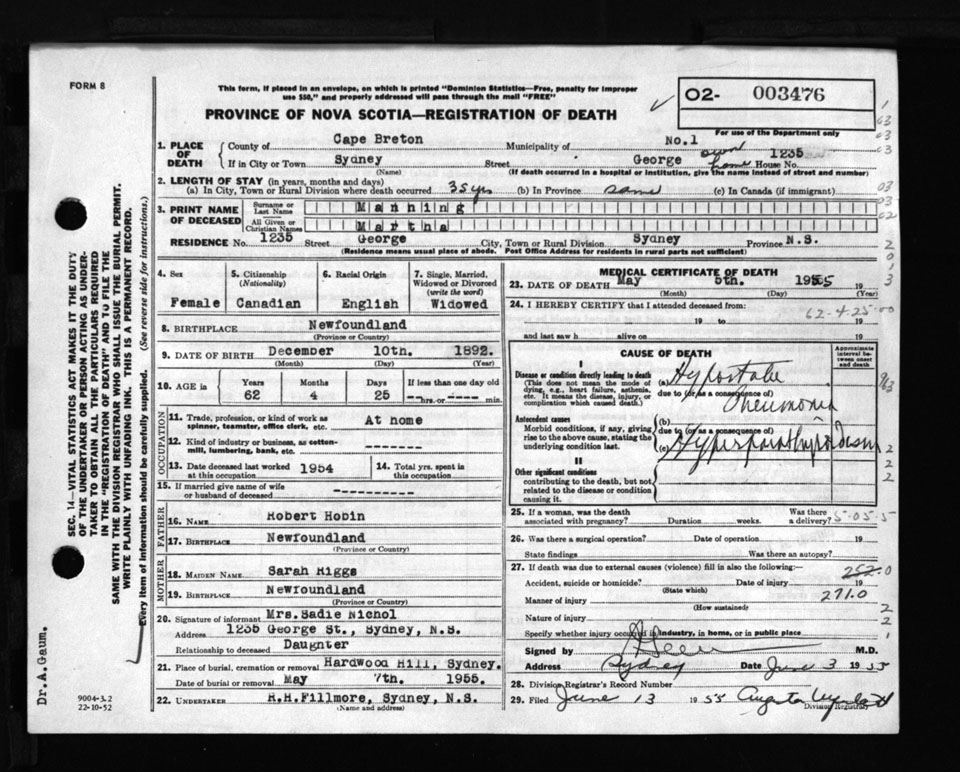 FORM 8
This form, if placed in an envelope, on which is printed "Dominion Statistics—Free, penalty for improper
use $50," and properly addressed will pass through the mail "FREE"
O2- 003476
PROVINCE OF NOVA SCOTIA—REGISTRATION OF DEATH
For use of the Department only
1. PLACE OF DEATH
County of Cape Breton Municipality of No.1
If in City or Town Sydney Street George House No. 1235
own home
(Name) (If death occurred in a hospital or institution, give the name instead of street and number)
2. LENGTH OF STAY (in years, months and days)
(a) In City, Town or Rural Division where death occurred 35 yrs (b) In Province same (c) In Canada (if immigrant)
3. PRINT NAME OF DECEASED
Surname or Last Name Manning
All Given or Christian Names Martha
RESIDENCE No. 1235 Street George City, Town or Rural Division Sydney Province N.S.
(Residence means usual place of abode. Post Office Address for residents in rural parts not sufficient)
4. Sex Female
5. Citizenship (Nationality) Canadian
6. Racial Origin English
7. Single, Married, Widowed or Divorced (write the word) Widowed
8. BIRTHPLACE Newfoundland
(Province or Country)
9. DATE OF BIRTH December 10th. 1892.
(Month) (Day) (Year)
10. AGE in Years Months Days If less than one day old
62 4 25 --hrs. or ---- min.
OCCUPATION
11. Trade, profession, or kind of work as spinner, teamster, office clerk, etc. At home
12. Kind of industry or business, as cotton-mill, lumbering, bank, etc. ----------
13. Date deceased last worked at this occupation 1954
14. Total yrs. spent in this occupation
15. If married give name of wife or husband of deceased ----------
FATHER
16. NAME Robert Hobin
17. BIRTHPLACE Newfoundland
(Province or Country)
MOTHER
18. MAIDEN NAME Sarah Riggs
19. BIRTHPLACE Newfoundland
(Province or Country)
20. Signature of informant Mrs. Sadie Nichol
Address 1235 George St., Sydney, N.S.
Relationship to deceased Daughter
21. Place of burial, cremation or removal Hardwood Hill, Sydney.
Date of burial or removal May 7th. 1955.
22. UNDERTAKER R.H.Fillmore, Sydney, N.S.
(Name and address)
MEDICAL CERTIFICATE OF DEATH
23. DATE OF DEATH May 5th. 1955 19
(Month) (Day) (Year)
24. I HEREBY CERTIFY that I attended deceased from:
62-4-25-00
19 to 19
and last saw h alive on 19
CAUSE OF DEATH
Approximate interval between onset and death
I
Disease or condition directly leading to death
(This does not mean the mode of dying, e.g., heart failure, asthenia, etc. It means the disease, injury, or complication which caused death.)
(a) Hypostatic
due to (or as a consequence of)
Pneumonia
Antecedent causes
Morbid conditions, if any, giving rise to the above cause, stating the underlying condition last.
(b)
due to (or as a consequence of)
(c)
II
Other significant conditions
contributing to the death, but not related to the disease or condition causing it.
25. If a woman, was the death associated with pregnancy? Duration weeks. Was there a delivery?
5-05-5
26. Was there a surgical operation? Date of operation 19
State findings Was there an autopsy?
27. If death was due to external causes (violence) fill in also the following:—
252.0
Accident, suicide or homicide? Date of injury 19
(State which)
271.0
Manner of injury
(How sustained)
Nature of injury
Specify whether injury occurred in industry, in home, or in public place
Signed by M.D.
Address Sydney Date June 3 1955
28. Division Registrar's Record Number
29. Filed June 13 1955
Division Registrar
SEC. 14—VITAL STATISTICS ACT MAKES IT THE DUTY
OF THE UNDERTAKER OR PERSON ACTING AS UNDER-
TAKER TO OBTAIN ALL THE PARTICULARS REQUIRED
IN THE "REGISTRATION OF DEATH" AND TO FILE THE
SAME WITH THE DIVISION REGISTRAR WHO SHALL ISSUE THE BURIAL PERMIT.
WRITE PLAINLY WITH UNFADING INK. THIS IS A PERMANENT RECORD.
Every item of information should be carefully supplied. (See reverse side for instructions.)
Dr.A.Gaum.
9004-3.2
22-10-52